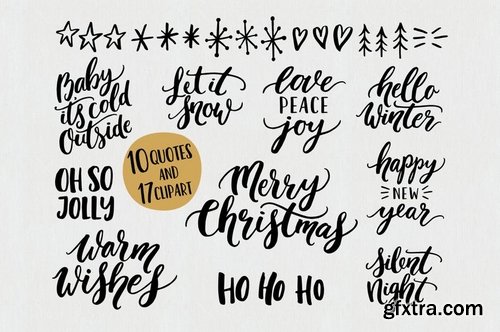 Baby
it's cold
Outside
Let it
snow
love
PEACE
joy
hello
winter
10 QUOTES
AND
17 CLIPART
OH SO
JOLLY
Merry
Christmas
happy
NEW
year
warm
wishes
HO HO HO
silent
Night
gfxtra.com